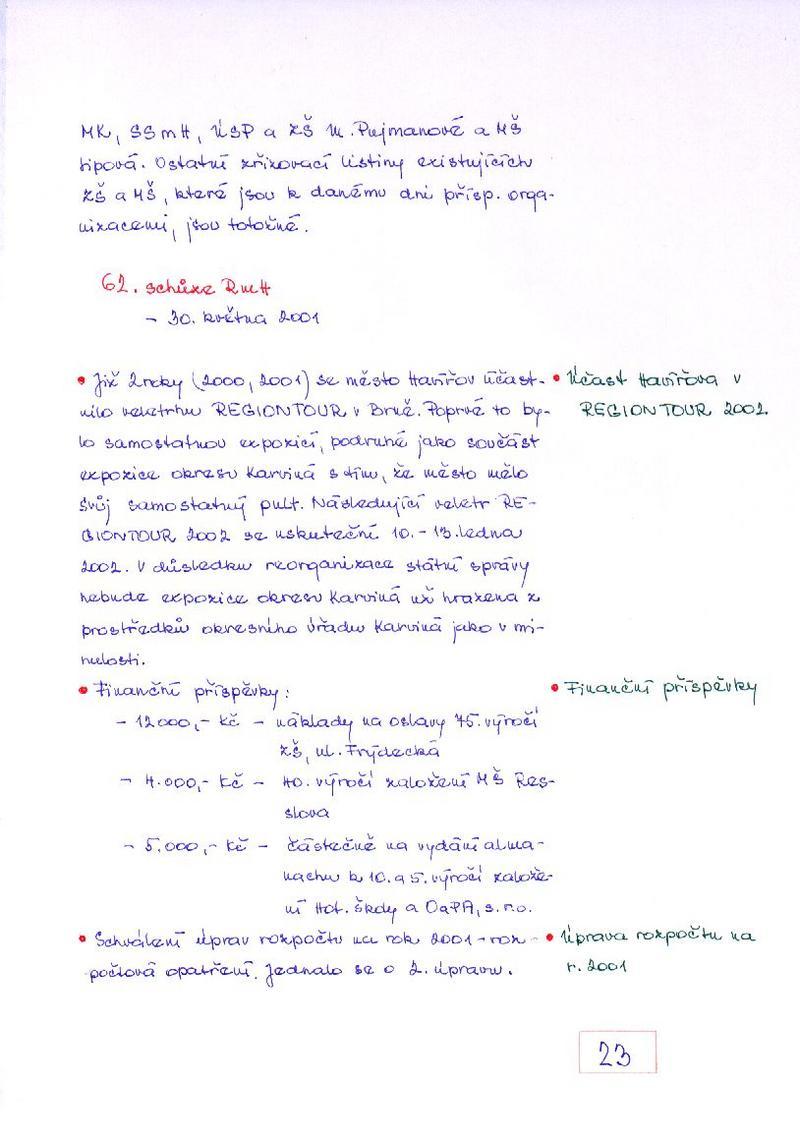 MK, SSmH, ÚSP a ZŠ M. Pujmanové a MŠ
Lipová. Ostatní zřizovací listiny existujících
ZŠ a MŠ, které jsou k danému dni přísp. orga-
nizacemi, jsou totožné.
62. schůze RmH
- 30. května 2001
• Již 2 roky (2000, 2001) se město Havířov účast-
nilo veletrhu REGIONTOUR v Brně. Poprvé to by-
lo samostatnou expozicí, podruhé jako součást
expozice okresu Karviná s tím, že město mělo
svůj samostatný pult. Následující veletr RE-
GIONTOUR 2002 se uskuteční 10. - 13. ledna
2002. V důsledku reorganizace státní správy
nebude expozice okresu Karviná už hrazena z
prostředků okresního úřadu Karviná jako v mi-
nulosti.
• Účast Havířova v
REGIONTOUR 2002.
• Finanční příspěvky:
- 12000,- Kč - náklady na oslavy 75. výročí
ZŠ, ul. Frýdecká
- 4.000,- Kč - 40. výročí založení MŠ Res-
slova
- 5.000,- Kč - částečně na vydání alma-
nachu k 10. a 5. výročí založe-
ní Hot. školy a OaPA, s.r.o.
• Finanční příspěvky
• Schválení úprav rozpočtu na rok 2001 - roz-
počtová opatření. Jednalo se o 2. úpravu.
• Úprava rozpočtu na
r. 2001
23